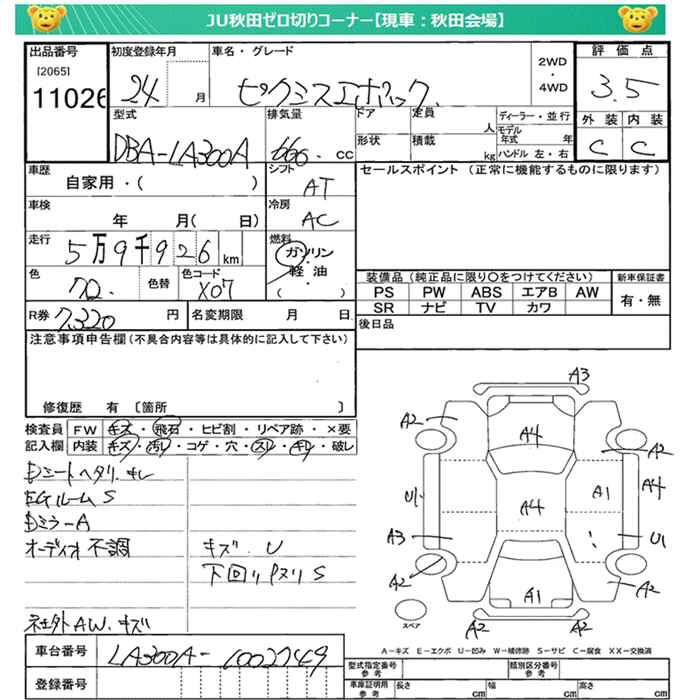 JU秋田ゼロ切りコーナー【現車：秋田会場】
出品番号 初度登録年月 車名・グレード 2WD・4WD 評価点
[2065]
11026 24 月 ピクシスエポック 3.5
外装 内装
C C
型式 排気量 ドア 定員 人 ディーラー・並行
DBA-LA300A 660 cc 形状 積載 kg モデル年式 年
ハンドル 左・右
車歴 シフト セールスポイント (正常に機能するものに限ります)
自家用・( ) AT
車検 冷房
年 月( 日) AC
走行 燃料
5万9千926km ガソリン
軽油
( )
色 色替 色コード
X07
装備品 (純正品に限り○をつけてください) 新車保証書
PS PW ABS エアB AW 有・無
SR ナビ TV カワ
R券 7,320 円 名変期限 月 日 後日品
注意事項申告欄(不具合内容等は具体的に記入して下さい)
修復歴 有 〔箇所 〕
検査員 FW キズ・飛石・ヒビ割・リペア跡・×要
記入欄 内装 キズ・汚レ・コゲ・穴・スレ・キレ・破レ
Dシートヘタリ.キレ
EGルームS
Dミラ-A
オーディオ不調
キズ.U
下回りPスリS
社外AW.キズ
A3
A2
A4
A2
A4
U1
A4
A1
A3
U1
A2
A1
A2
A2
A2
スペア
A-キズ E-エクボ U-凹み W-補修跡 S-サビ C-腐食 XX-交換済
車台番号 LA300A-1002749
登録番号
型式指定番号 参考 類別区分番号 参考
車庫証明用 参考 長さ cm 幅 cm 高さ cm